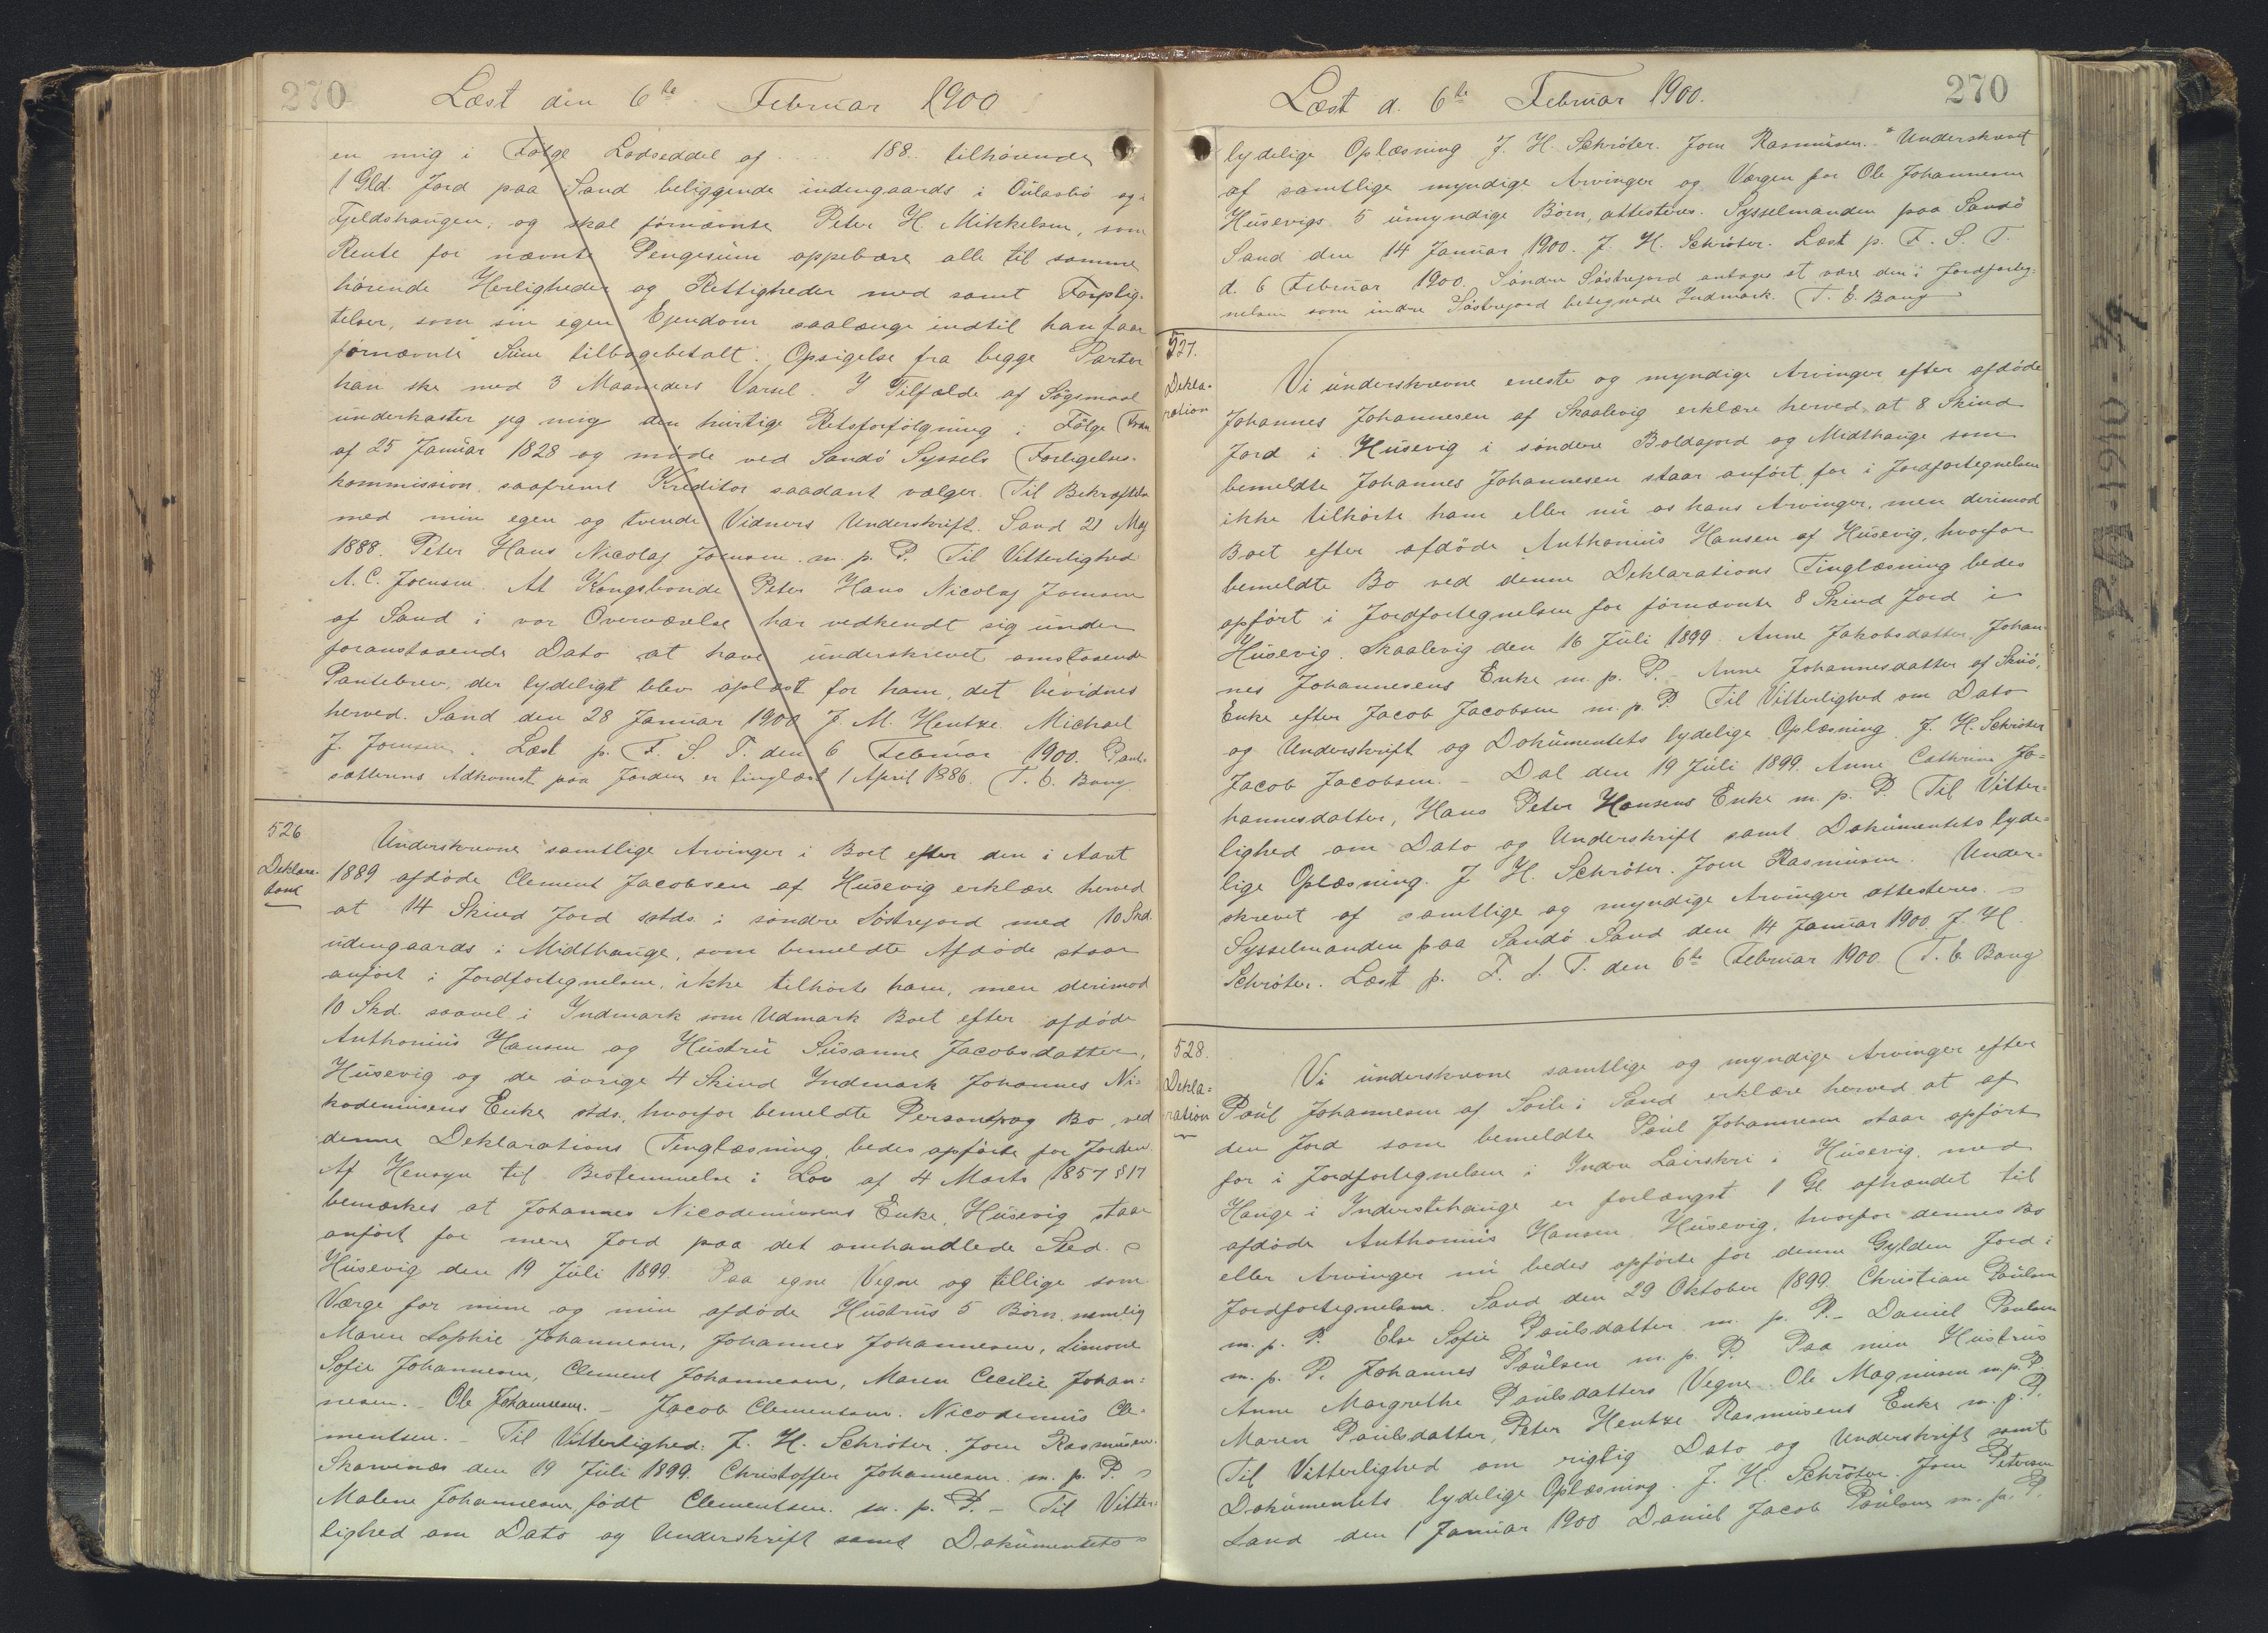 270
Læst den 6te Februar 1900
en mig i Følge Lodseddel af .... 188.. tilhørende
1 Gld. Jord paa Sand beliggende indengaards i Oulasbö og i
Fjeldshaugen, og skal förnævnte Peter H. Mikkelsen, som
Rente for nævnte Pengesum oppebære alle til samme
hörende Herligheder og Rettigheder med samt Forplig-
telser, som sin egen Ejendom saalænge indtil han faar
förnævnte Sum tilbagebetalt. Opsigelse fra begge Parter
kan ske med 3 Maaneders Varsel. I Tilfælde af Sögsmaal
underkaster jeg mig den hurtige Retsforfölgning i Fölge Frdn
af 25 Januar 1828 og möde ved Sandö Syssels Forligelses-
kommission, saafremt Kreditor saadant vælger. Til Bekræftelse
med min egen og tvende Vidners Underskrift. Sand 21 Maj
1888. Peter Hans Nicolaj Joensen m. p. P. Til Vitterlighed
A. C. Joensen. At Kongsbonde Peter Hans Nicolaj Joensen
af Sand i vor Overværelse har vedkendt sig under
foranstaaende Dato at have underskrevet omstaaende
Pantebrev, der lydeligt blev oplæst for ham, det bevidnes
herved. Sand den 28 Januar 1900 J. M. Hentze. Michael
J. Joensen. Læst p. F. S. T. den 6 Februar 1900. Pant-
sætterens Adkomst paa Jorden er tinglæst 1 April 1886. T. E. Bang
526
Deklara-
tion
Underskrevne samtlige Arvinger i Boet efter den i Aaret
1889 afdöde Clement Jacobsen af Husevig erklære herved
at 14 Skind Jord sstds. i söndre Söstrejord med 10 Skd.
udengaards i Midthauge, som bemeldte Afdöde staar
anfört i Jordfortegnelsen, ikke tilhörte ham, men derimod
10 Skd. saavel i Indmark som Udmark Boet efter afdöde
Anthonius Hansen og Hustru Susanne Jacobsdatter,
Husevig og de övrige 4 Skind Indmark Johannes Ni-
kodemusens Enke stds., hvorfor bemeldte Person og Bo, ved
denne Deklarations Tinglæsning, bedes opförte for Jorden.
Af Hensyn til Bestemmelse i Lov af 4 Marts 1857 § 17
bemærkes at Johannes Nicodemusens Enke, Husevig staar
anfört for mere Jord paa det omhandlede Sted.
Husevig den 19 Juli 1899. Paa egne Vegne og tillige som
Værge for mine og min afdöde Hustrus 5 Börn, nemlig
Maren Sophie Johannesen, Johannes Johannesen, Simone
Sofie Johannesen, Clement Johannesen, Maren Cecilie Johan-
nesen. - Ole Johannesen. - Jacob Clementsen. Nicodemus Cle-
mentsen. - Til Vitterlighed: J. H. Schröter. Joen Rasmusen.
Skarvenæs den 19 Juli 1899. Christoffer Johannesen. m. p. P.
Malene Johannesen, födt Clementsen. m. p. P. - Til Vitter-
lighed om Dato og Underskrift samt Dokumentets
Læst d. 6te Februar 1900.
270
lydelige Oplæsning J. H. Schröter. Joen Rasmusen. Underskrevet
af samtlige myndige Arvinger og Værgen for Ole Johannesen
Husevigs 5 umyndige Börn, attesteres. Sysselmanden paa Sandö
Sand den 14 Januar 1900. J. H. Schröter. Læst p. F. S. T.
d. 6 Februar 1900. Söndre Söstrejord antages at være den i Jordforteg-
nelsen som indre Söstrejord betegnede Indmark. T. E. Bang
527.
Dekla-
ration
Vi underskrevne eneste og myndige Arvinger efter afdöde
Johannes Johannesen af Skaalevig erklære herved at 8 Skind
Jord i Husevig i söndere Boldajord og Midthauge som
bemeldte Johannes Johannesen staar anfört for i Jordfortegnelsen
ikke tilhörte ham eller nu os hans Arvinger, men derimod
Boet efter afdöde Anthonius Hansen af Husevig, hvorfor
bemeldte Bo ved denne Deklarations Tinglæsning bedes
opfört i Jordfortegnelsen for förnævnte 8 Skind Jord i
Husevig. Skaalevig den 16 Juli 1899. Anne Jakobsdatter, Johan-
nes Johannesens Enke m. p. P. - Anne Johannesdatter af Skuö,
Enke efter Jacob Jacobsen m. p. P. Til Vitterlighed om Dato
og Underskrift og Dokumentets lydelige Oplæsning. J. H. Schröter
Jacob Jacobsen. - Dal den 19 Juli 1899. Anne Cathrine Jo-
hannesdatter, Hans Peter Hansens Enke m. p. P. Til Vitter-
lighed om Dato og Underskrift samt Dokumentets lyde-
lige Oplæsning. J. H. Schröter. Joen Rasmusen. Under-
skrevet af samtlige og myndige Arvinger attesteres.
Sysselmanden paa Sandö Sand den 14 Januar 1900. J. H.
Schröter. Læst p. F. S. T. den 6te Februar 1900. T. E. Bang
528.
Dekla-
ration
Vi underskrevne samtlige og myndige Arvinger efter
Poul Johannesen af Soile i Sand erklære herved at af
den Jord som bemeldte Poul Johannesen staar opfört
for i Jordfortegnelsen i Indre Lairskri i Husevig, med
Hauge i Inderstehauge er forlængst 1 Gl. afhændet til
afdöde Anthonius Hansen, Husevig, hvorfor dennes Bo
eller Arvinger nu bedes opförte for denne Gylden Jord i
Jordfortegnelsen. Sand den 29 Oktober 1899. Christian Poulsen
m. p. P. Else Sofie Poulsdatter m. p. P. - Daniel Poulsen
m. p. P. Johannes Poulsen m. p. P. Paa min Hustrus
Anne Margrethe Poulsdatters Vegne. Ole Magnusen m. p. P.
Maren Poulsdatter, Peter Hentze Rasmusens Enke m. p. P.
Til Vitterlighed om rigtig Dato og Underskrift samt
Dokumentets lydelige Oplæsning. J. H. Schröter. Joen Petersen
Sand den 1 Januar 1900 Daniel Jacob Poulsen m. p. P.